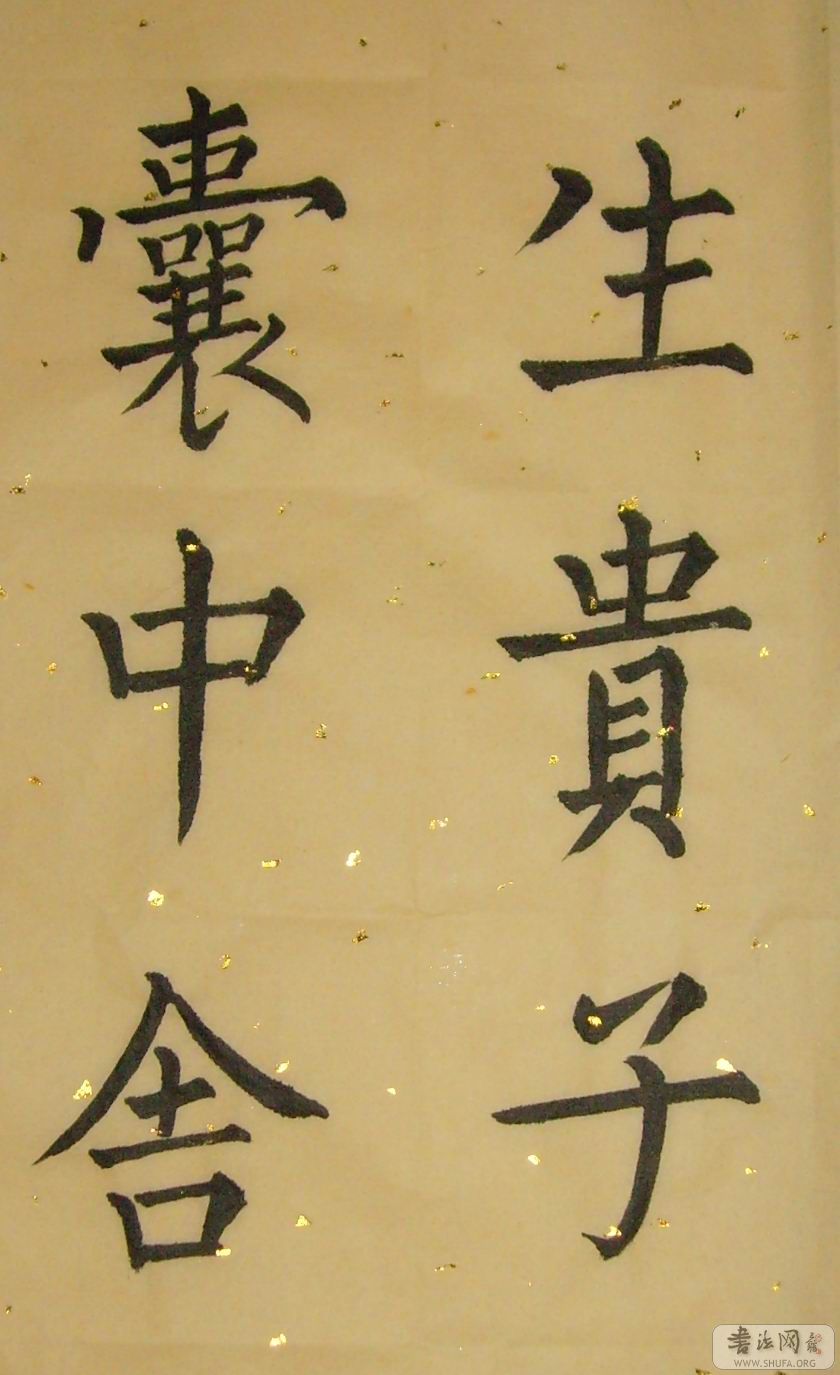 生貴子
囊中舍
書法网
WWW.SHUFA.ORG